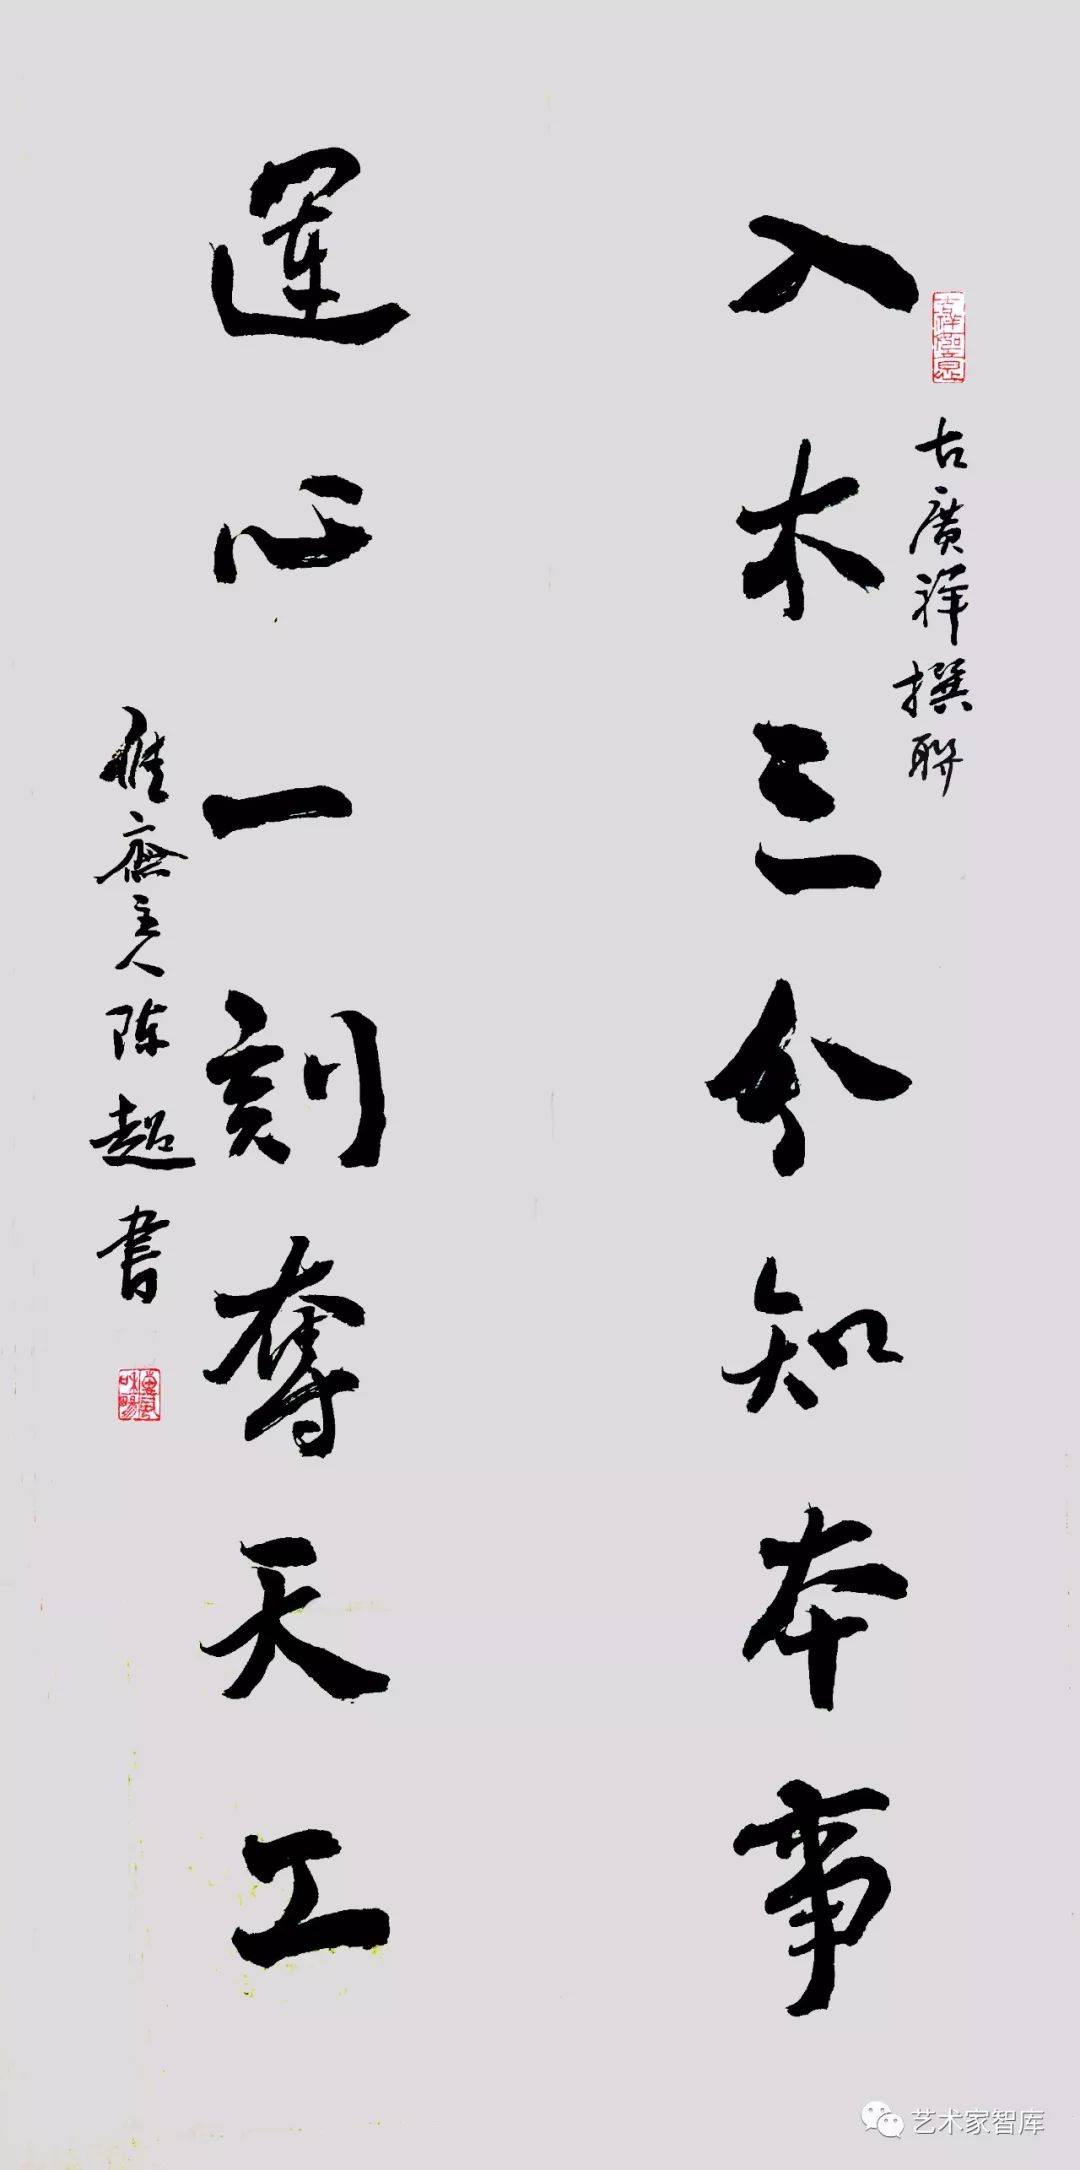 入木三分知本事
古廣祥撰聯
運心一刻奪天工
雅齋主人陈超書
惠風和暢
艺术家智库